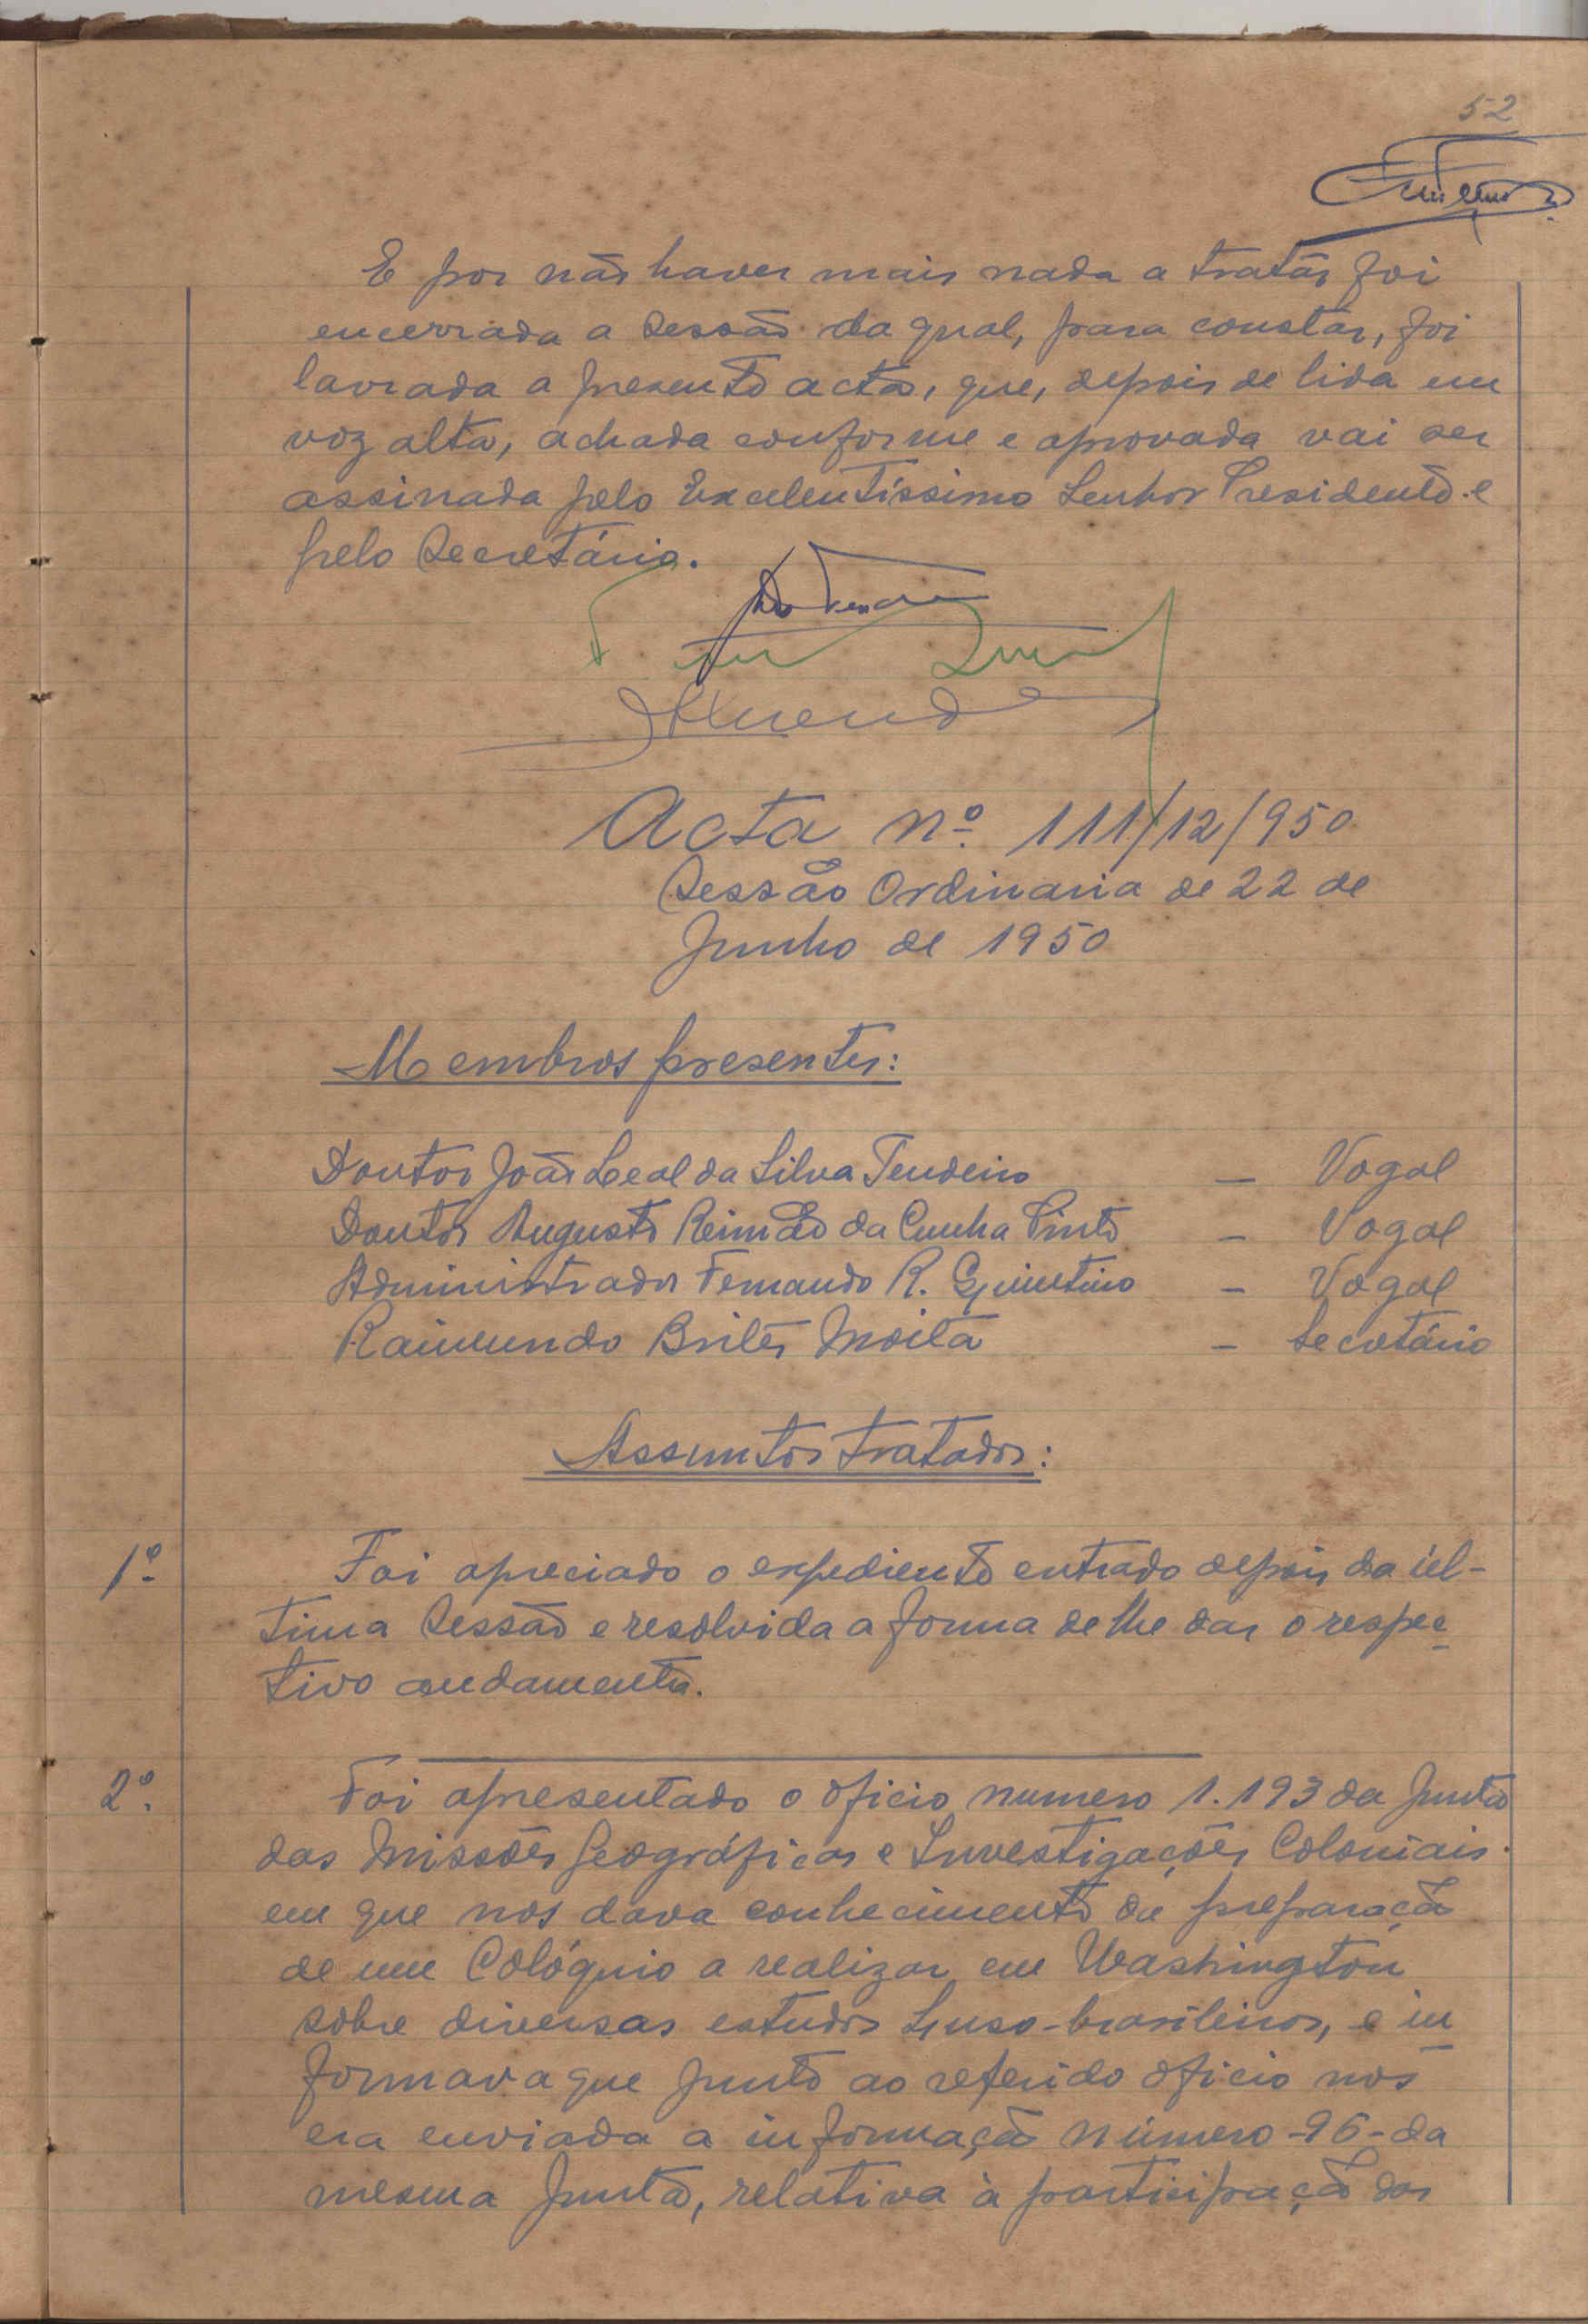 52
E por não haver mais nada a tratar foi
encerrada a sessão da qual, para constar, foi
lavrada a presente acta, que, depois de lida em
voz alta, achada conforme e aprovada vai ser
assinada pelo Excelentíssimo Senhor Presidente e
pelo Secretário.
Acta nº 111/12/950
Sessão Ordinaria de 22 de
Junho de 1950
Membros presentes:
Doutor João Leal da Silva Tendeiro — Vogal
Doutor Augusto Reimão da Cunha Pinto — Vogal
Administrador Fernando R. Quintino — Vogal
Raimundo Brites Moita — Secretário
Assuntos tratados:
1º Foi apreciado o expediente entrado depois da úl-
tima Sessão e resolvida a forma de lhe dar o respec-
tivo andamento.
2º. Foi apresentado o oficio numero 1.193 da Junta
das Missões Geográficas e Investigações Coloniais
em que nos dava conhecimento da preparação
de um Colóquio a realizar em Washington
sobre diversas estudos Luso-brasileiros, e in-
formava que junto ao referido oficio nos
era enviada a informação número -96- da
mesma Junta, relativa à participação dos